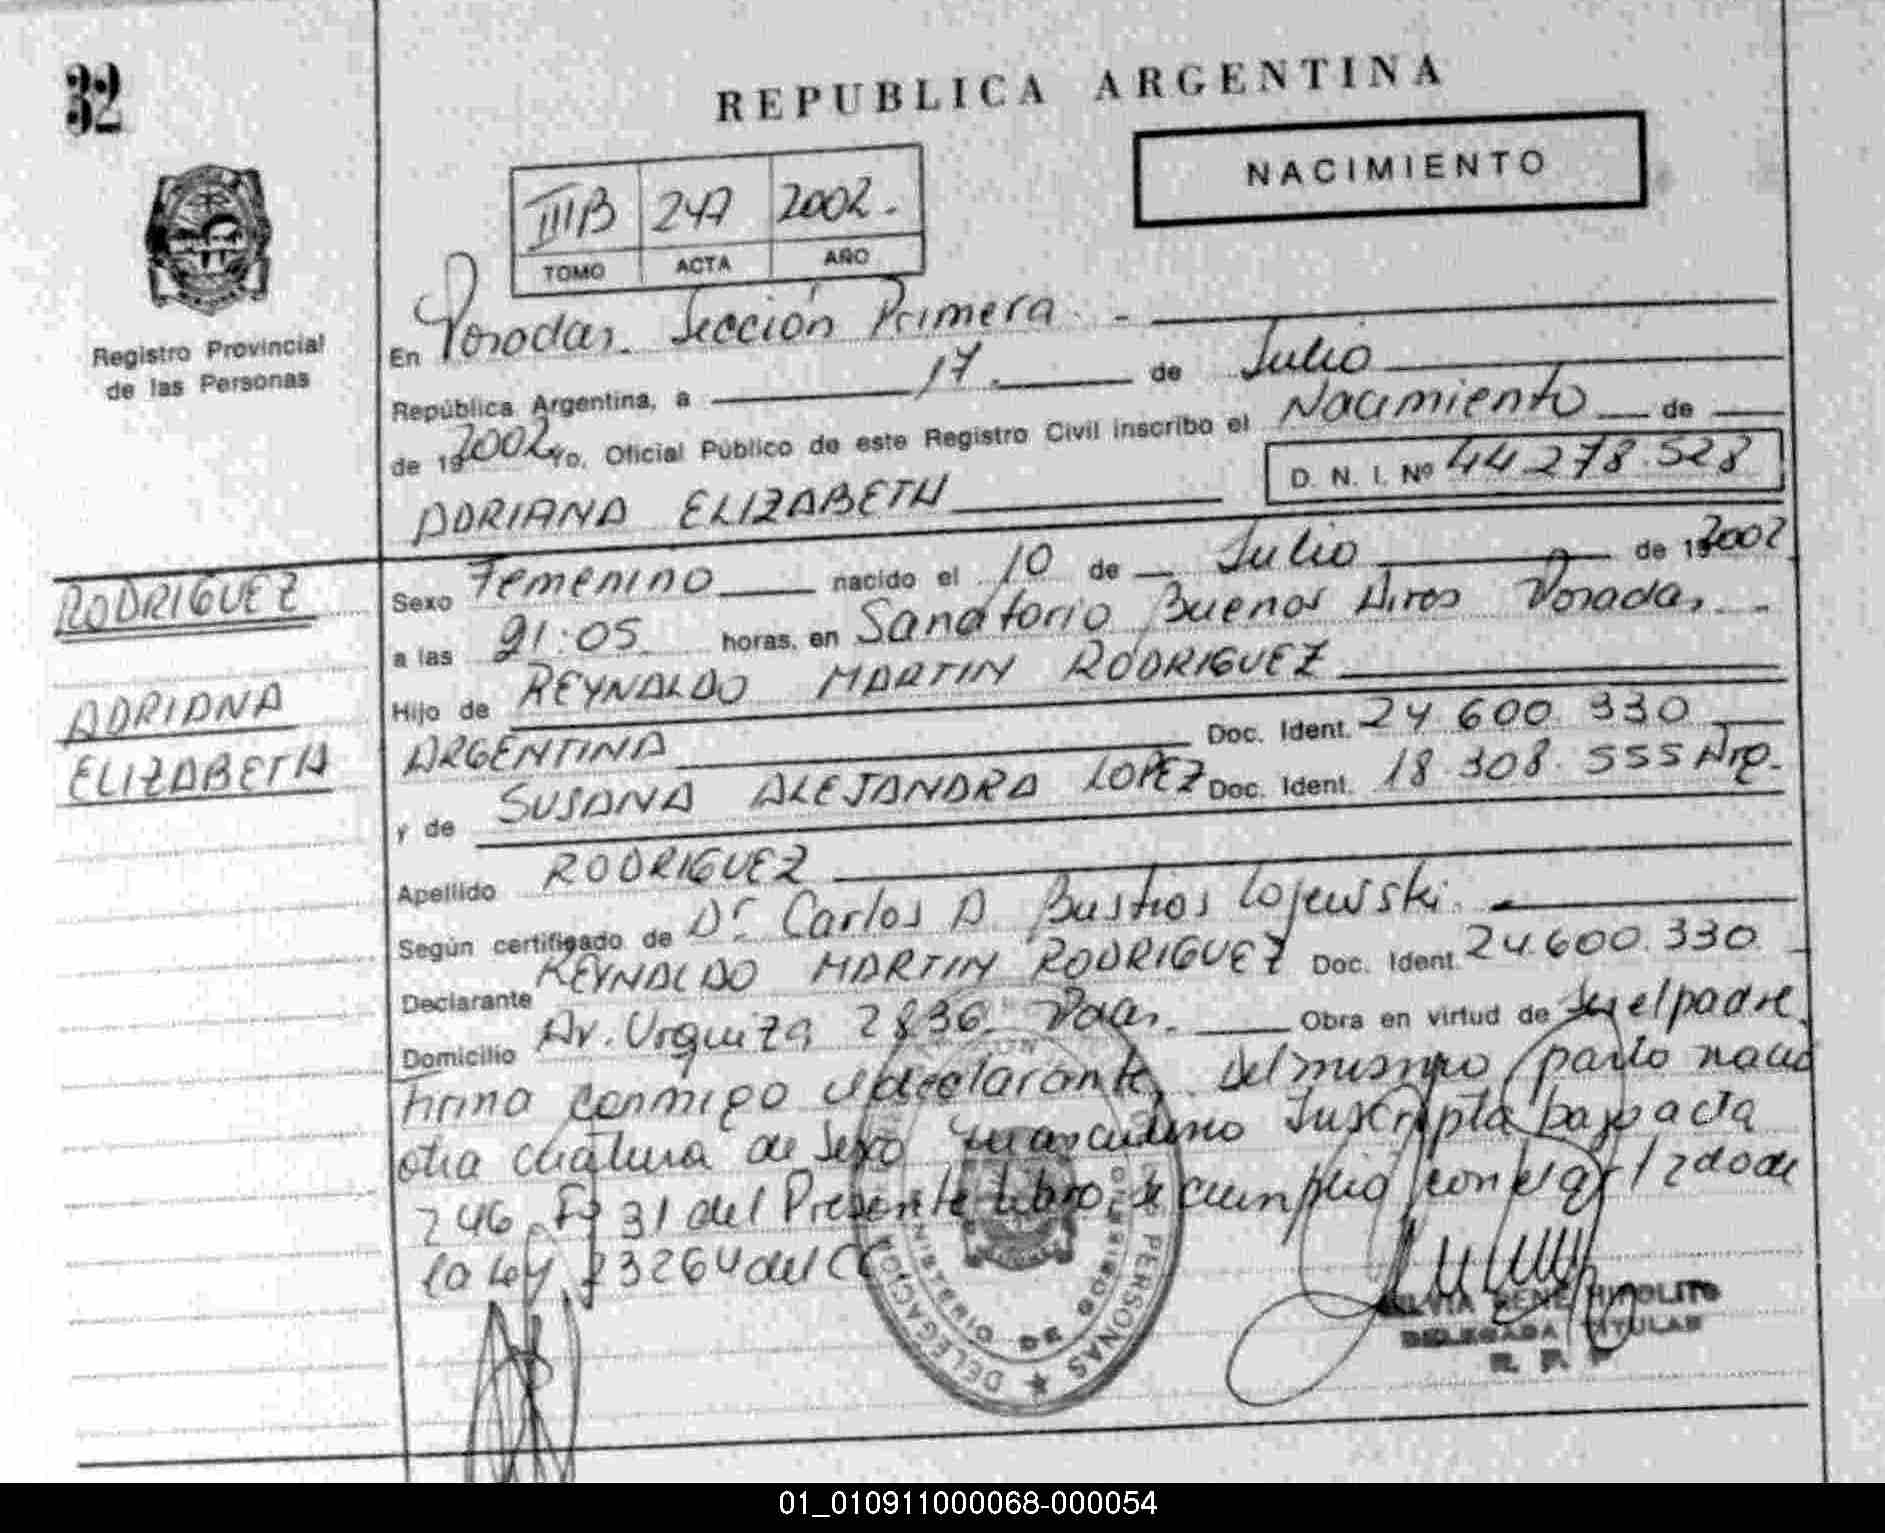 32
REPUBLICA ARGENTINA
NACIMIENTO
IIIB 247 2002.
TOMO ACTA AÑO
Registro Provincial
de las Personas
En Posadas. Sección Primera. -
República Argentina, a 17. de Julio
de 192002 Yo, Oficial Público de este Registro Civil inscribo el Nacimiento de
D. N. I. Nº 44 278.528
ADRIANA ELIZABETH
RODRIGUEZ
ADRIANA
ELIZABETH
Sexo Femenino nacido el 10 de Julio de 192002
a las 21:05 horas, en Sanatorio Buenos Aires Posadas. -
Hijo de REYNALDO MARTIN RODRIGUEZ
ARGENTINA Doc. Ident. 24 600 330
y de SUSANA ALEJANDRA LOPEZ Doc. Ident. 18.308.555 Arg.
Apellido RODRIGUEZ
Según certificado de Dr. Carlos A. Bustios Lojewski.
Declarante REYNALDO MARTIN RODRIGUEZ Doc. Ident. 24.600.330
Domicilio Av. Urquiza 2836 Pdas. Obra en virtud de Ser el padre
firma conmigo el declarante, Del mismo parto nacio
otra criatura de Sexo masculino Inscripta bajo acta
246 Fº 31 del Presente Libro, Se cumplio con el art 2do de
la Ley 23264 del CC
DELEGACION PERSONAS
SILVIA RENE HIPOLITO
DELEGADA TITULAR
R. P. P
01_010911000068-000054